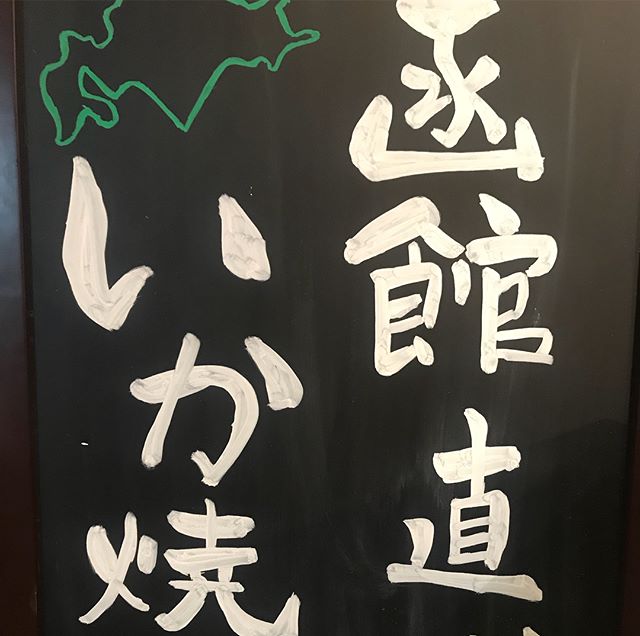 函館直
いか焼